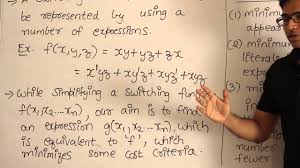 be represented by using a
number of expressions.
Ex. f(x,y,z) = xy + yz + zx
= x'yz + xy'z + xyz' + xyz
→ While simplifying a switching func
f(x₁, x₂ … xₙ), our aim is to find
an expression g(x₁, x₂ … xₙ) which
is equivalent to 'f', which
minimizes some cost criteria.
(1) minimum
appear
(2) minimum
literals
expre
(3) minim
in
expre
numbe
fewer